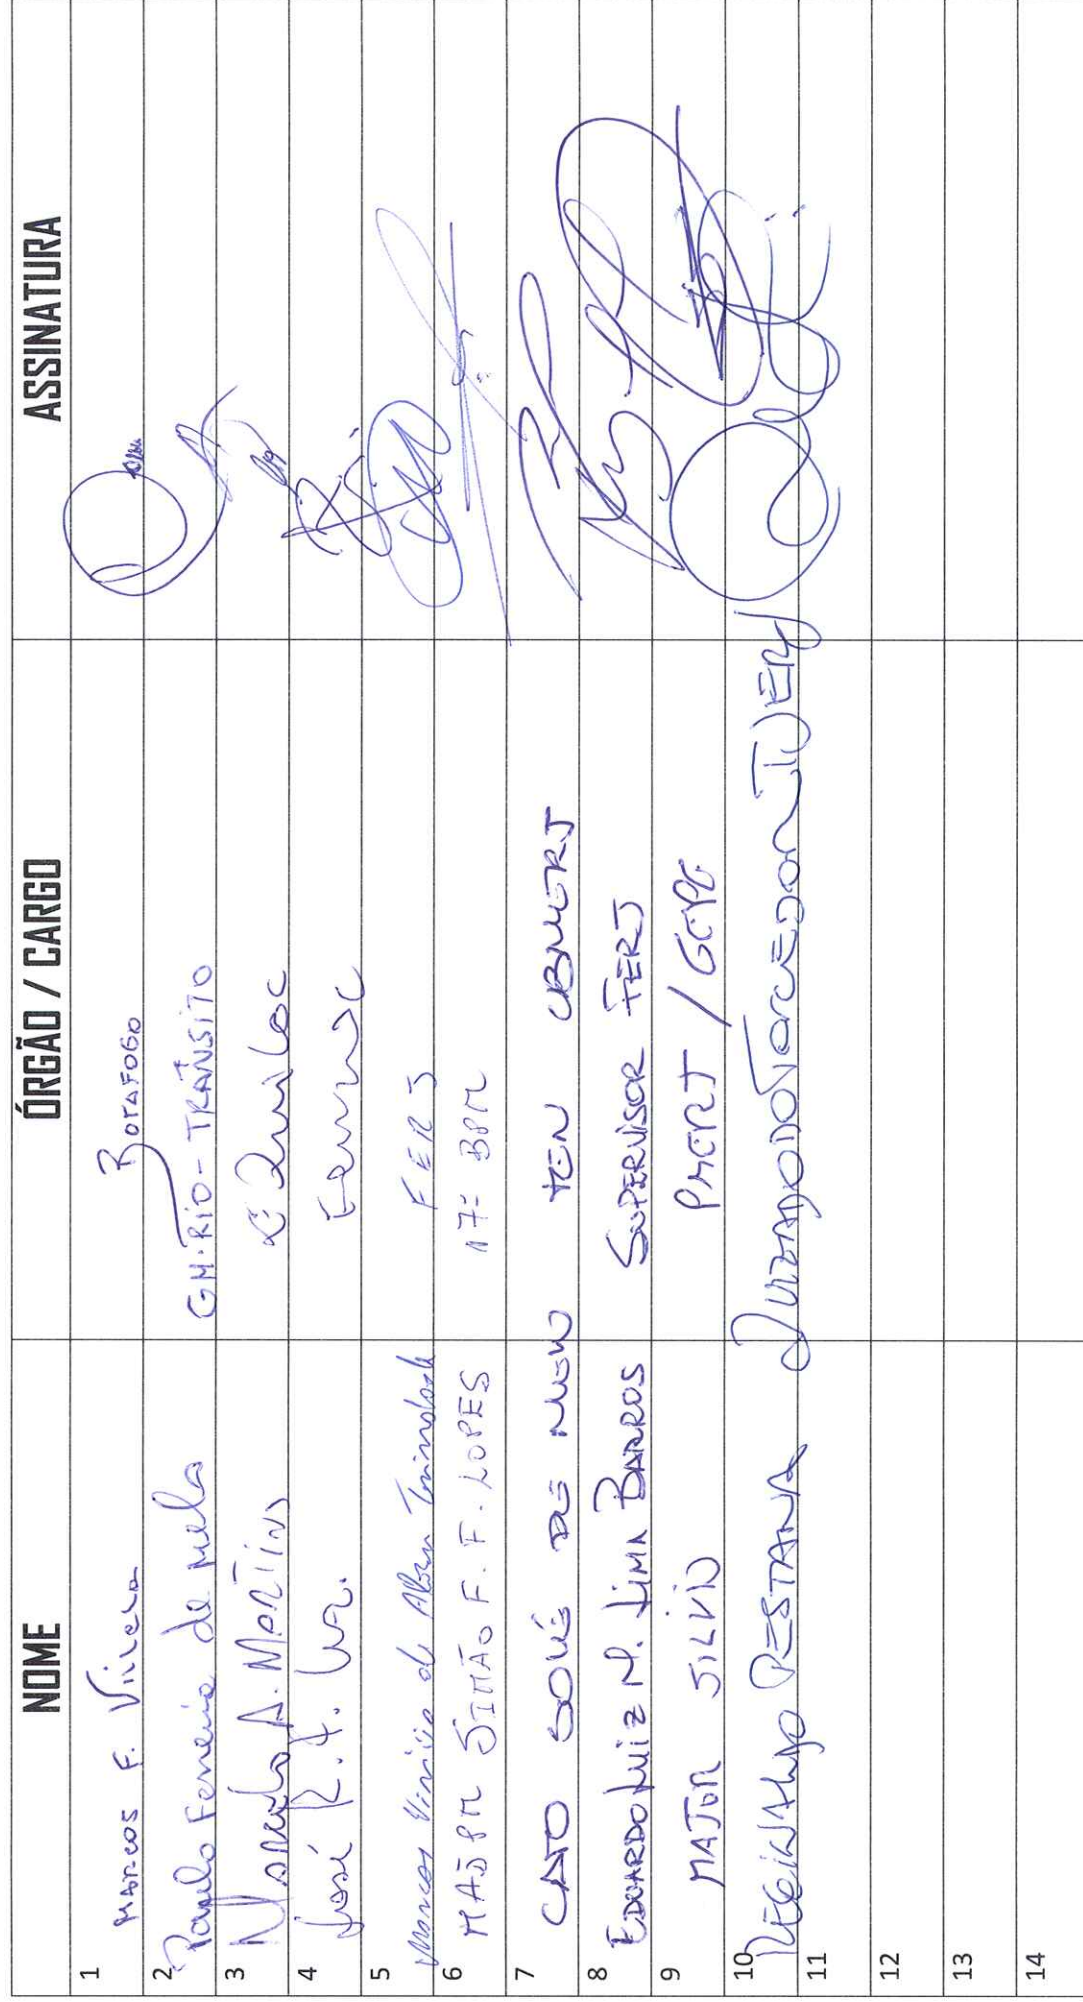 NOME ÓRGÃO / CARGO ASSINATURA
1 MARCOS F. Vilela BOTAFOGO
2 Paulo Ferreira de melo GM-RIO-TRÂNSITO
3 Marcelo A. MARTINS
4 José R.
5 Marcos Vinicio de Abreu Trindade FERJ
6 MAJ PM SIMÃO F. F. LOPES 17º BPM
7 CAIO DE TEN CBMERJ
8 EDUARDO LUIZ M. LIMA BARROS SUPERVISOR FERJ
9 MAJOR SILVIO PMERJ / GEPE
10 REGINALDO PESTANA JUIZADO DO TORCEDOR TJERJ
11
12
13
14